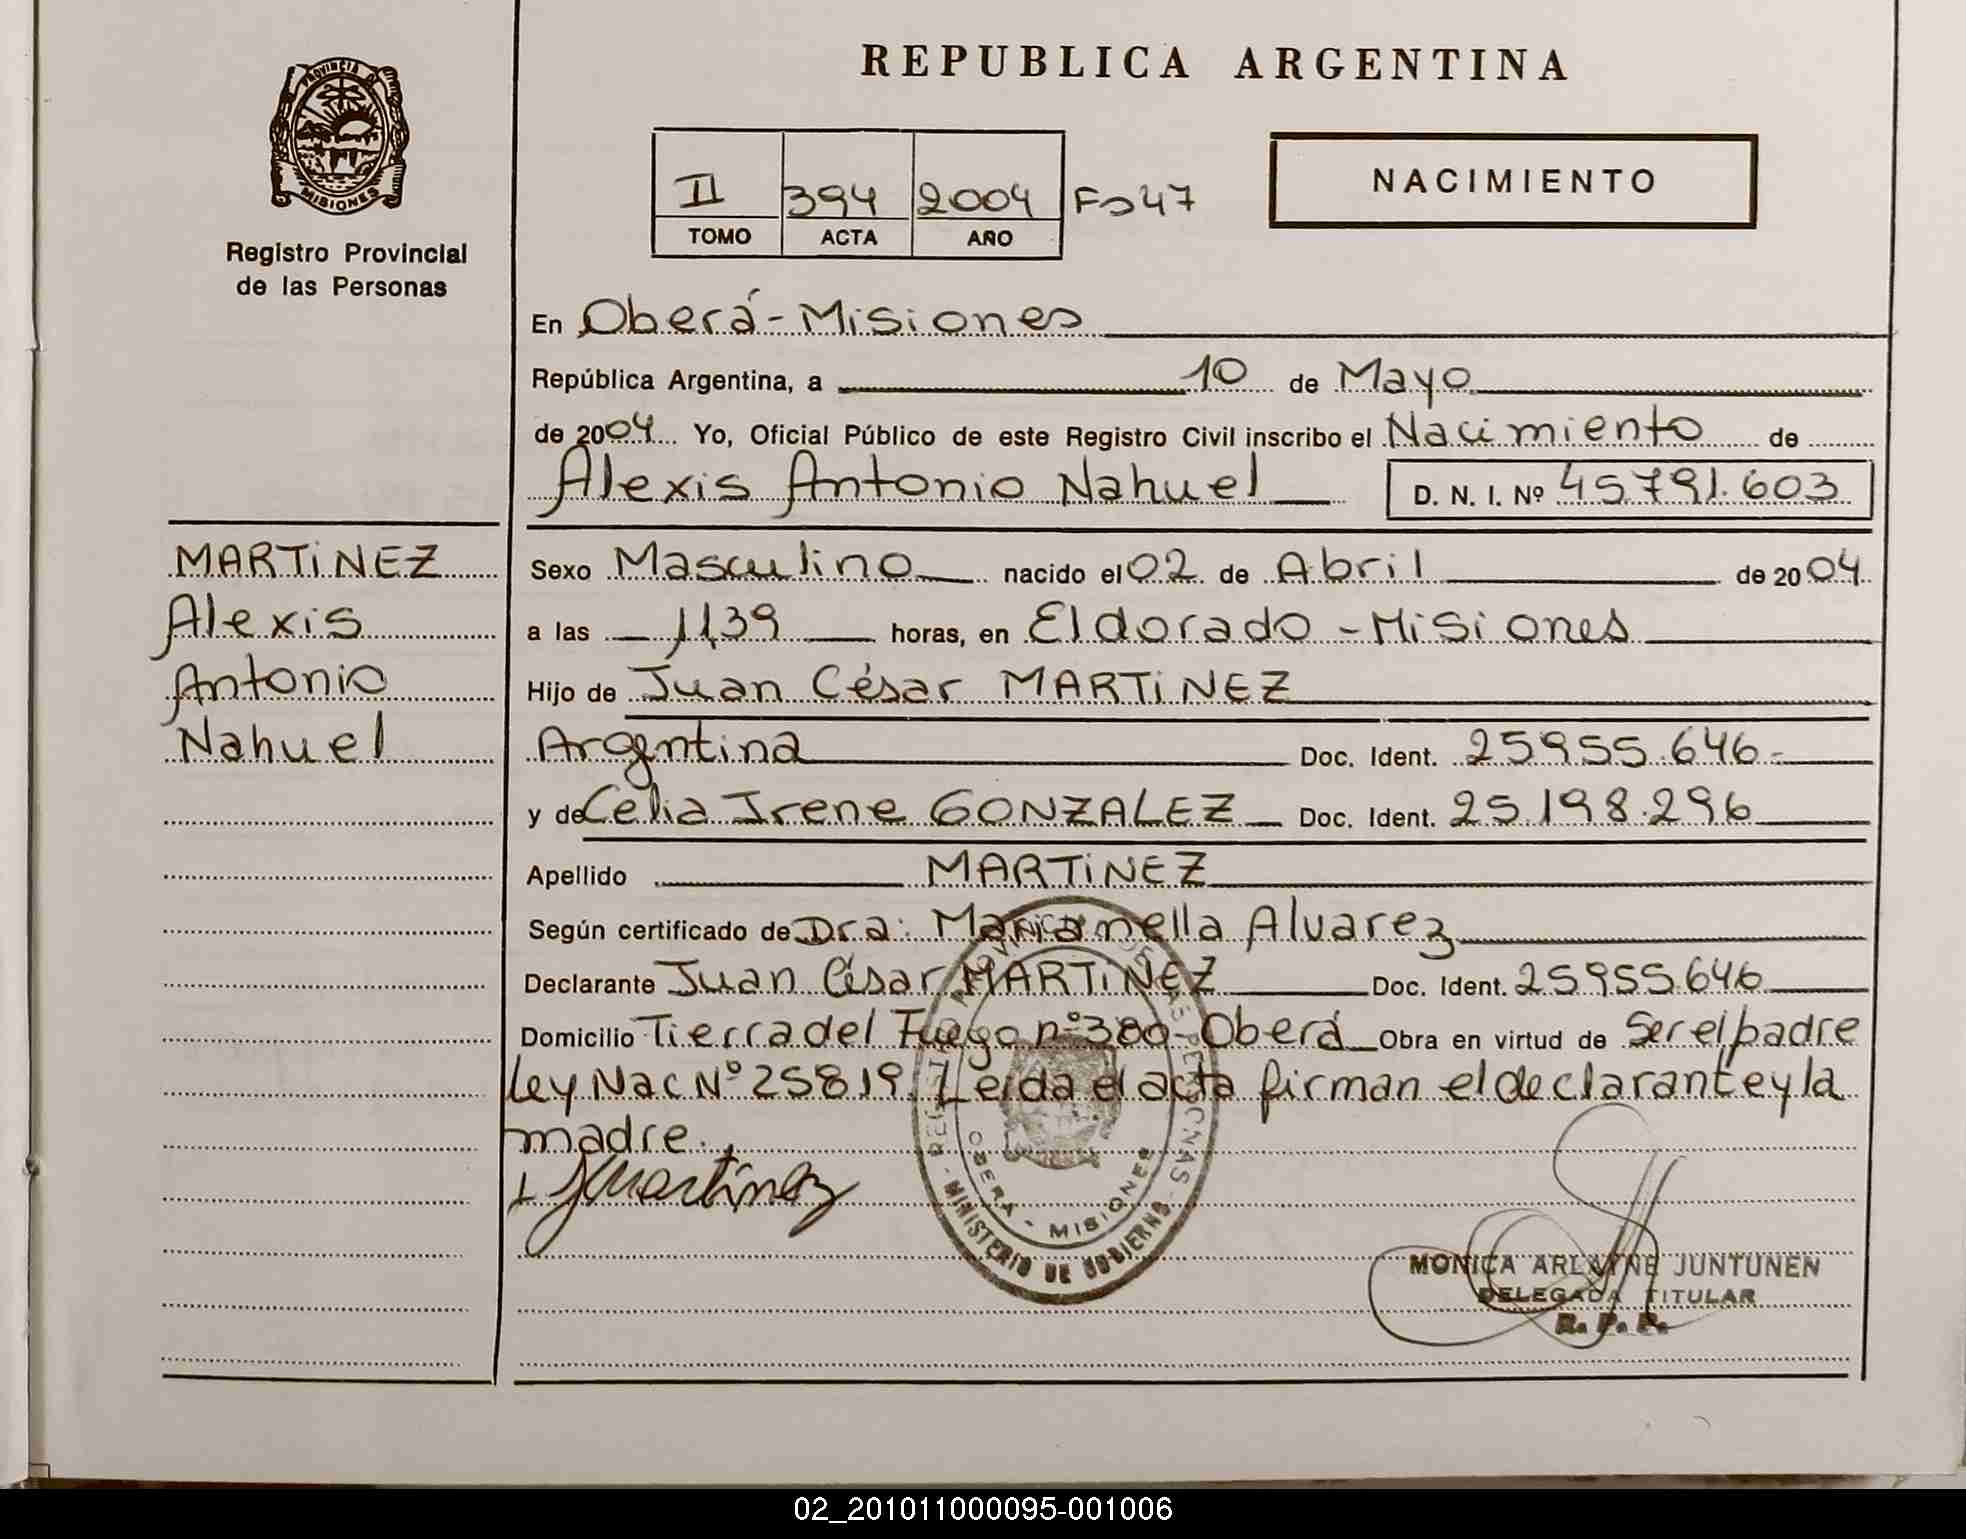 REPUBLICA ARGENTINA
PROVINCIA D
MISIONES
Registro Provincial
de las Personas
II 394 2004 Fo 47
TOMO ACTA AÑO
NACIMIENTO
En Oberá - Misiones
República Argentina, a 10 de Mayo
de 2004 Yo, Oficial Público de este Registro Civil inscribo el Nacimiento de
Alexis Antonio Nahuel D. N. I. Nº 45791.603
MARTiNEZ
Alexis
Antonio
Nahuel
Sexo Masculino nacido el 02 de Abril de 2004
a las 11,39 horas, en Eldorado - Misiones
Hijo de Juan César MARTiNEZ
Argentina Doc. Ident. 25955.646-
y de Celia Irene GONZALEZ Doc. Ident. 25.198.296
Apellido MARTiNEZ
Según certificado de Dra: Alvarez
Declarante Juan César MARTiNEZ Doc. Ident. 25955.646
Domicilio Tierra del Fuego nº 380 - Oberá Obra en virtud de Ser el padre
Ley Nac Nº 25819. Leida el acta firman el declarante y la
madre.
JMartinez
OBERA - MISIONES
MINISTERIO DE GOBIERNO
MONICA ARLAYNE JUNTUNEN
DELEGADA TITULAR
R. P. P.
02_201011000095-001006